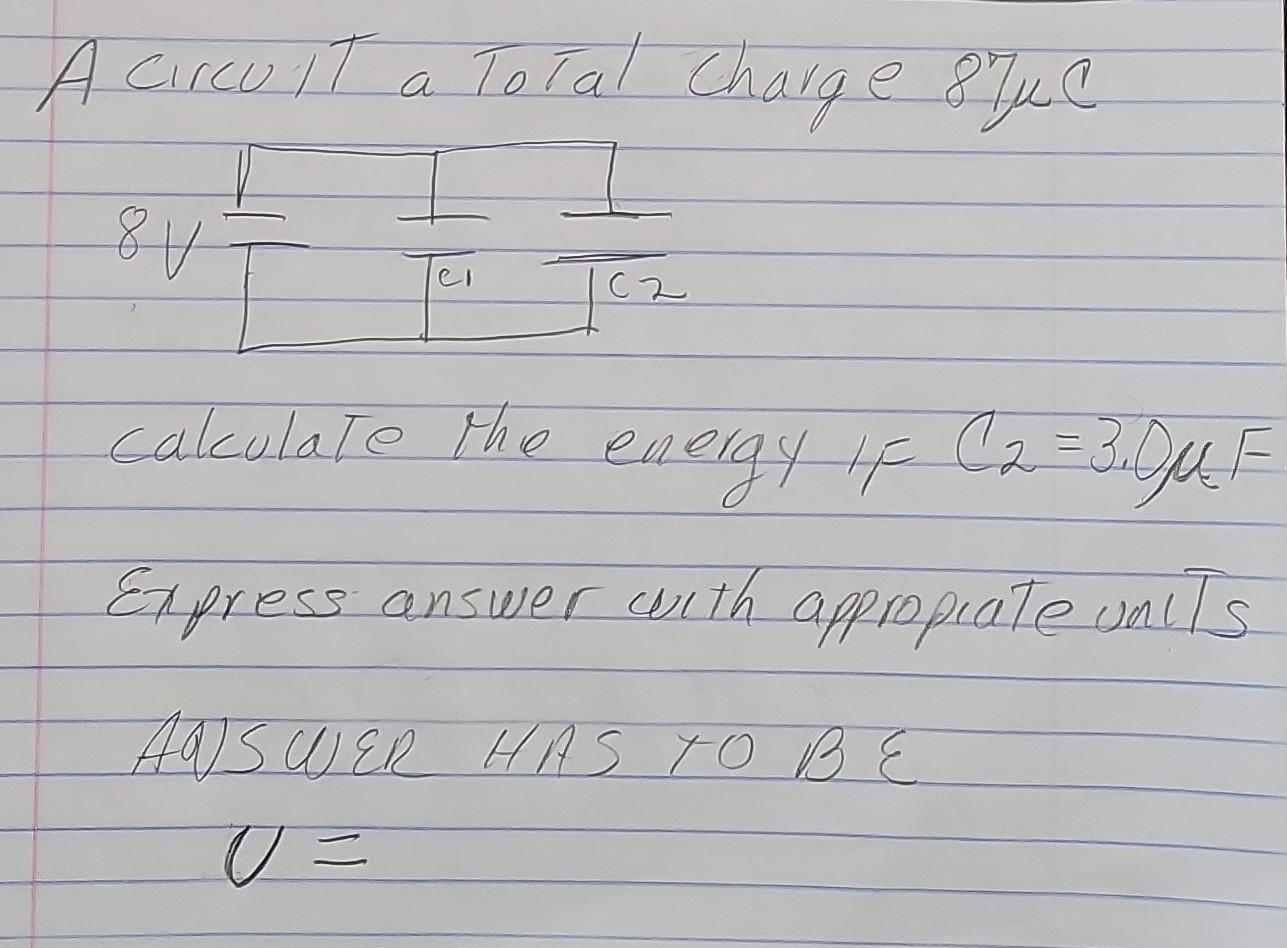 A circuIT a ToTal charge 87μC
8V
C1
C2
calculaTe the energy IF C2 = 3.0μF
Express answer with appropiaTe uniTs
ANSWER HAS TO BE
U =